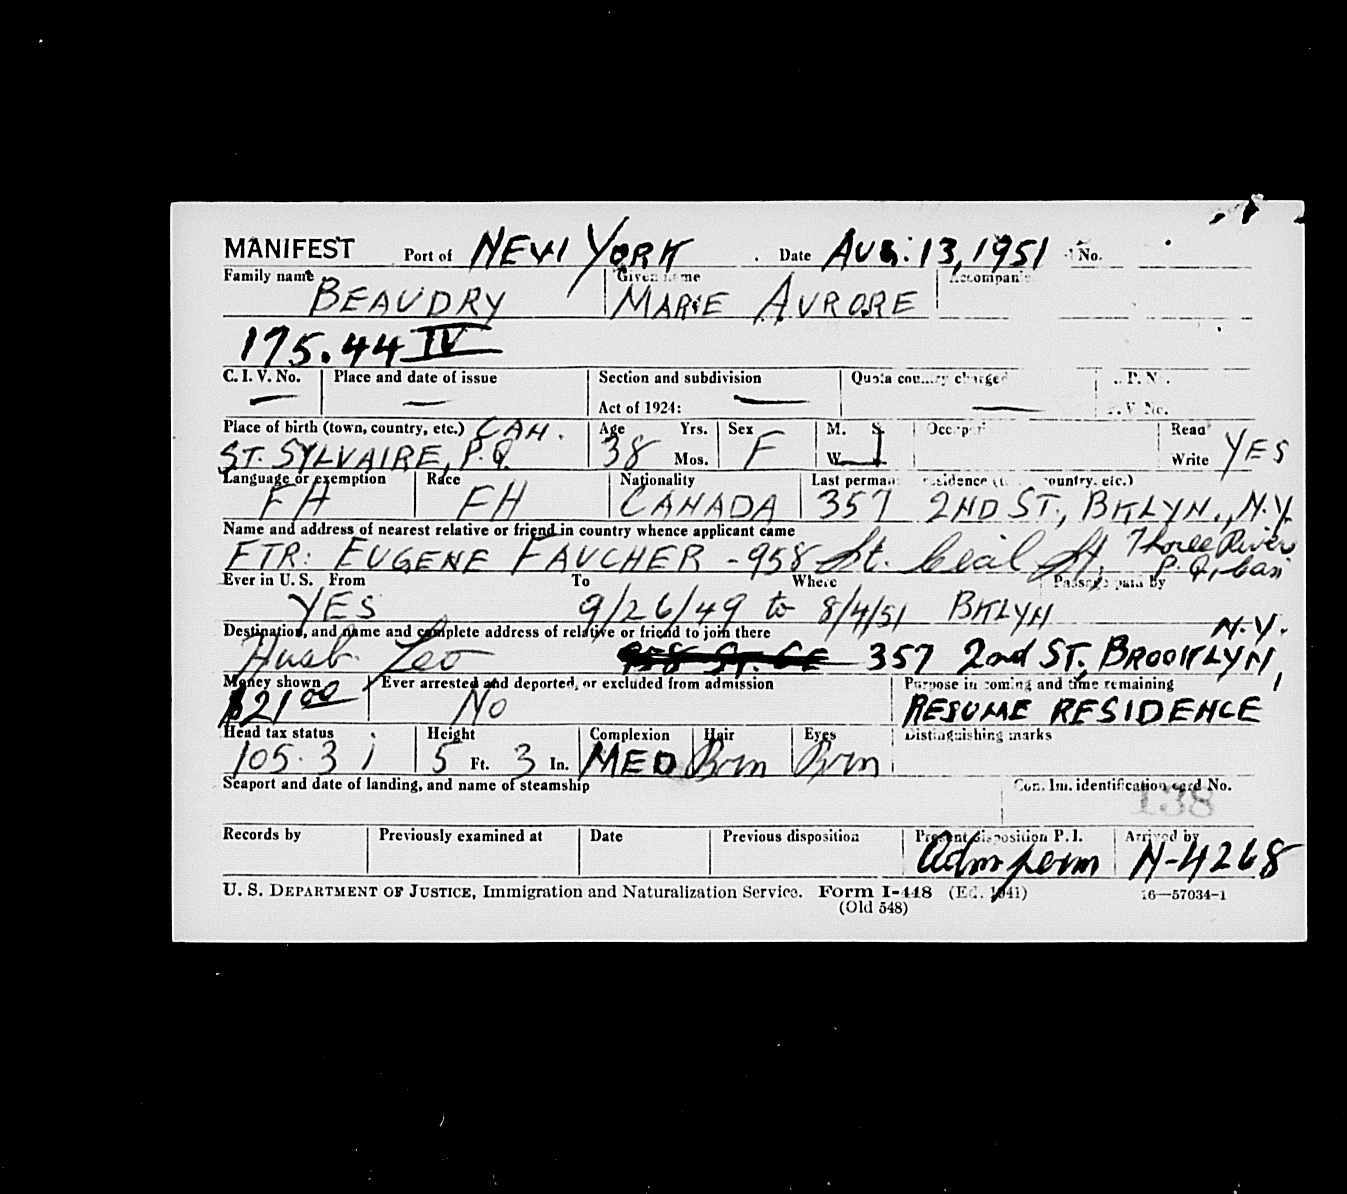 MANIFEST Port of NEW YORK Date AUG. 13, 1951 No.
Family name Given name Accompani
BEAUDRY MARIE AURORE
175.44 IV
C. I. V. No. Place and date of issue Section and subdivision Quota country charged P. N.
— — Act of 1924: — — V No.
Place of birth (town, country, etc.) CAN. Age Yrs. Sex M. S. Occupa Read
ST. SYLVAIRE, P.Q. 38 Mos. F W. Write YES
Language or exemption Race Nationality Last permanent residence ( country, etc.)
FH FH CANADA 357 2ND ST., BKLYN., N.Y.
Name and address of nearest relative or friend in country whence applicant came
FTR: EUGENE FAUCHER - 958 St. Cecil St. Three River
P.Q. Can
Ever in U. S. From To Where Passage paid by
YES 9/26/49 to 8/4/51 BKLYN
N.Y.
Destination, and name and complete address of relative or friend to join there
Husb. Leo 958 ST. CE 357 2nd ST., BROOKLYN,
Money shown Ever arrested and deported, or excluded from admission Purpose in coming and time remaining
$21 00 No RESUME RESIDENCE
Head tax status Height Complexion Hair Eyes Distinguishing marks
105.3 i 5 Ft. 3 In. MED Brn Brn
Seaport and date of landing, and name of steamship Con. Im. identification card No.
138
Records by Previously examined at Date Previous disposition Present disposition P. I. Arrived by
Adm perm N-4268
U. S. DEPARTMENT OF JUSTICE, Immigration and Naturalization Service. Form I-448 (Ed. 1941) 16—57034-1
(Old 548)